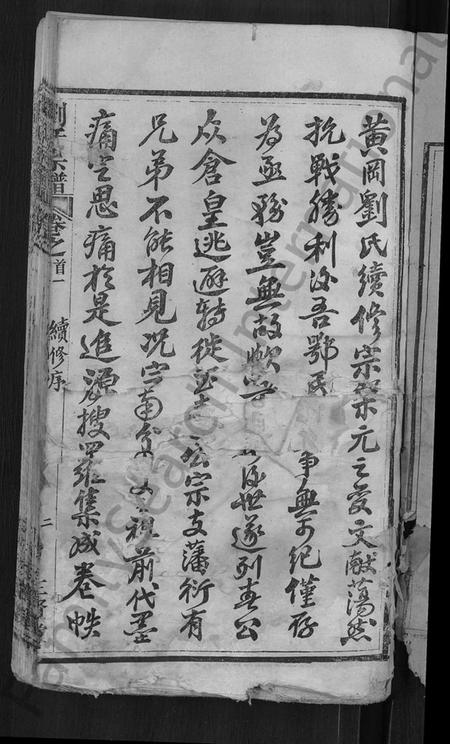 黃岡劉氏續修宗
元之變文獻蕩然
抗戰勝利後吾鄂民
事無可紀僅存
為亟務豈無故歟
後世遂列春公
众倉皇逃避轉徙
公宗支藩衍有
兄弟不能相見况
祖前代墨
痛定思痛於是進源搜羅集成卷帙
劉氏宗譜
卷之首一
續修序
二
FamilySearch International